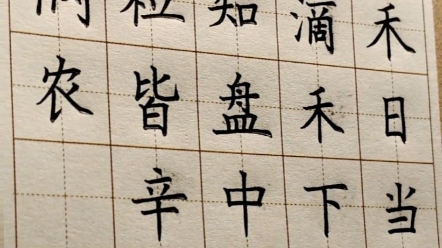 禾日当
滴禾下
知盘中
粒皆辛
农